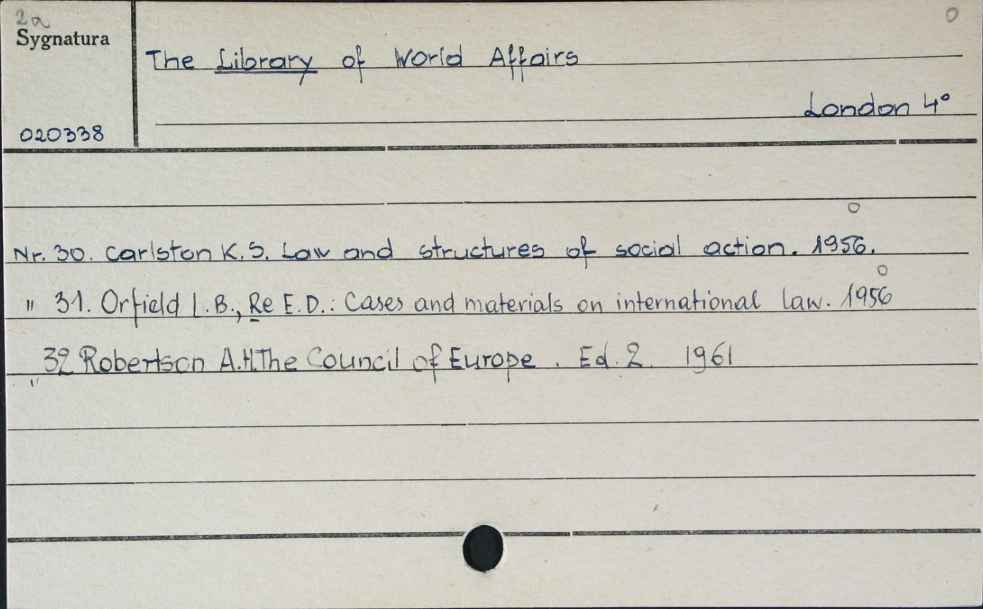 2a
Sygnatura
020338
The Library of World Affairs
London 4°
Nr. 30. Carlston K.S. Law and structures of social action. 1956.
" 31. Orfield L.B., Re E.D.: Cases and materials on international law. 1956
" 32 Robertson A.H. The Council of Europe. Ed. 2. 1961